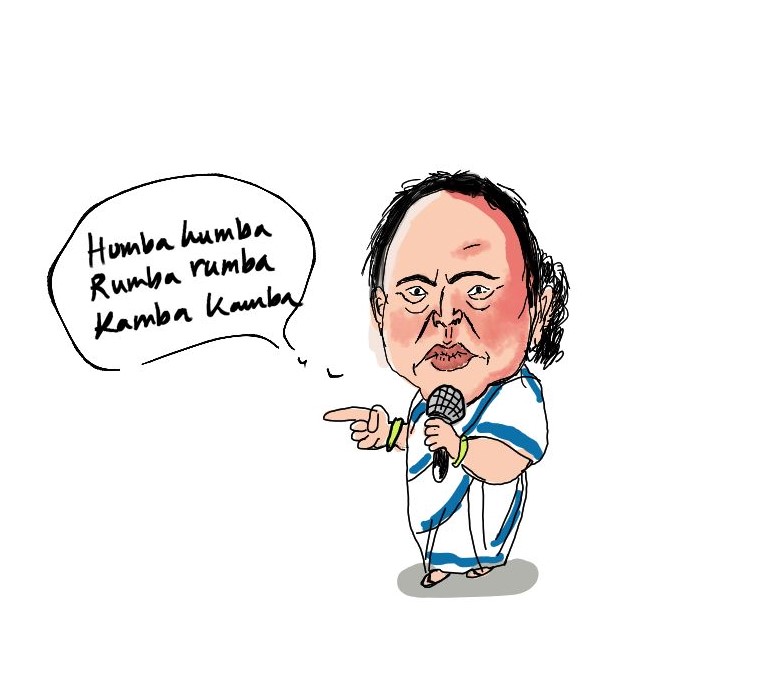 Humba humba
Rumba rumba
Kamba Kamba